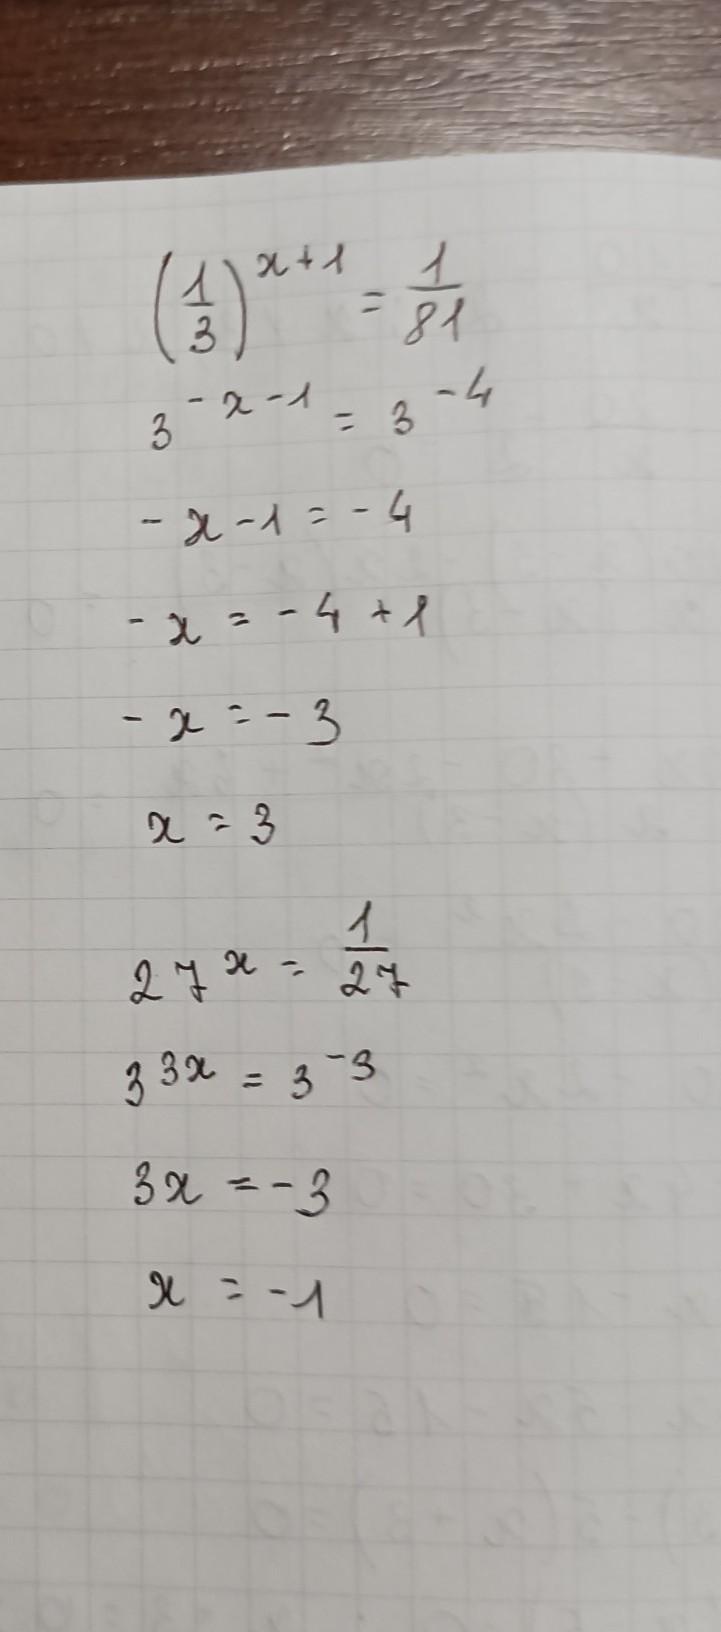 (1/3)^(x+1) = 1/81
3^(-x-1) = 3^(-4)
-x-1=-4
-x = -4+1
-x = -3
x = 3
27^x = 1/27
3^(3x) = 3^(-3)
3x = -3
x = -1